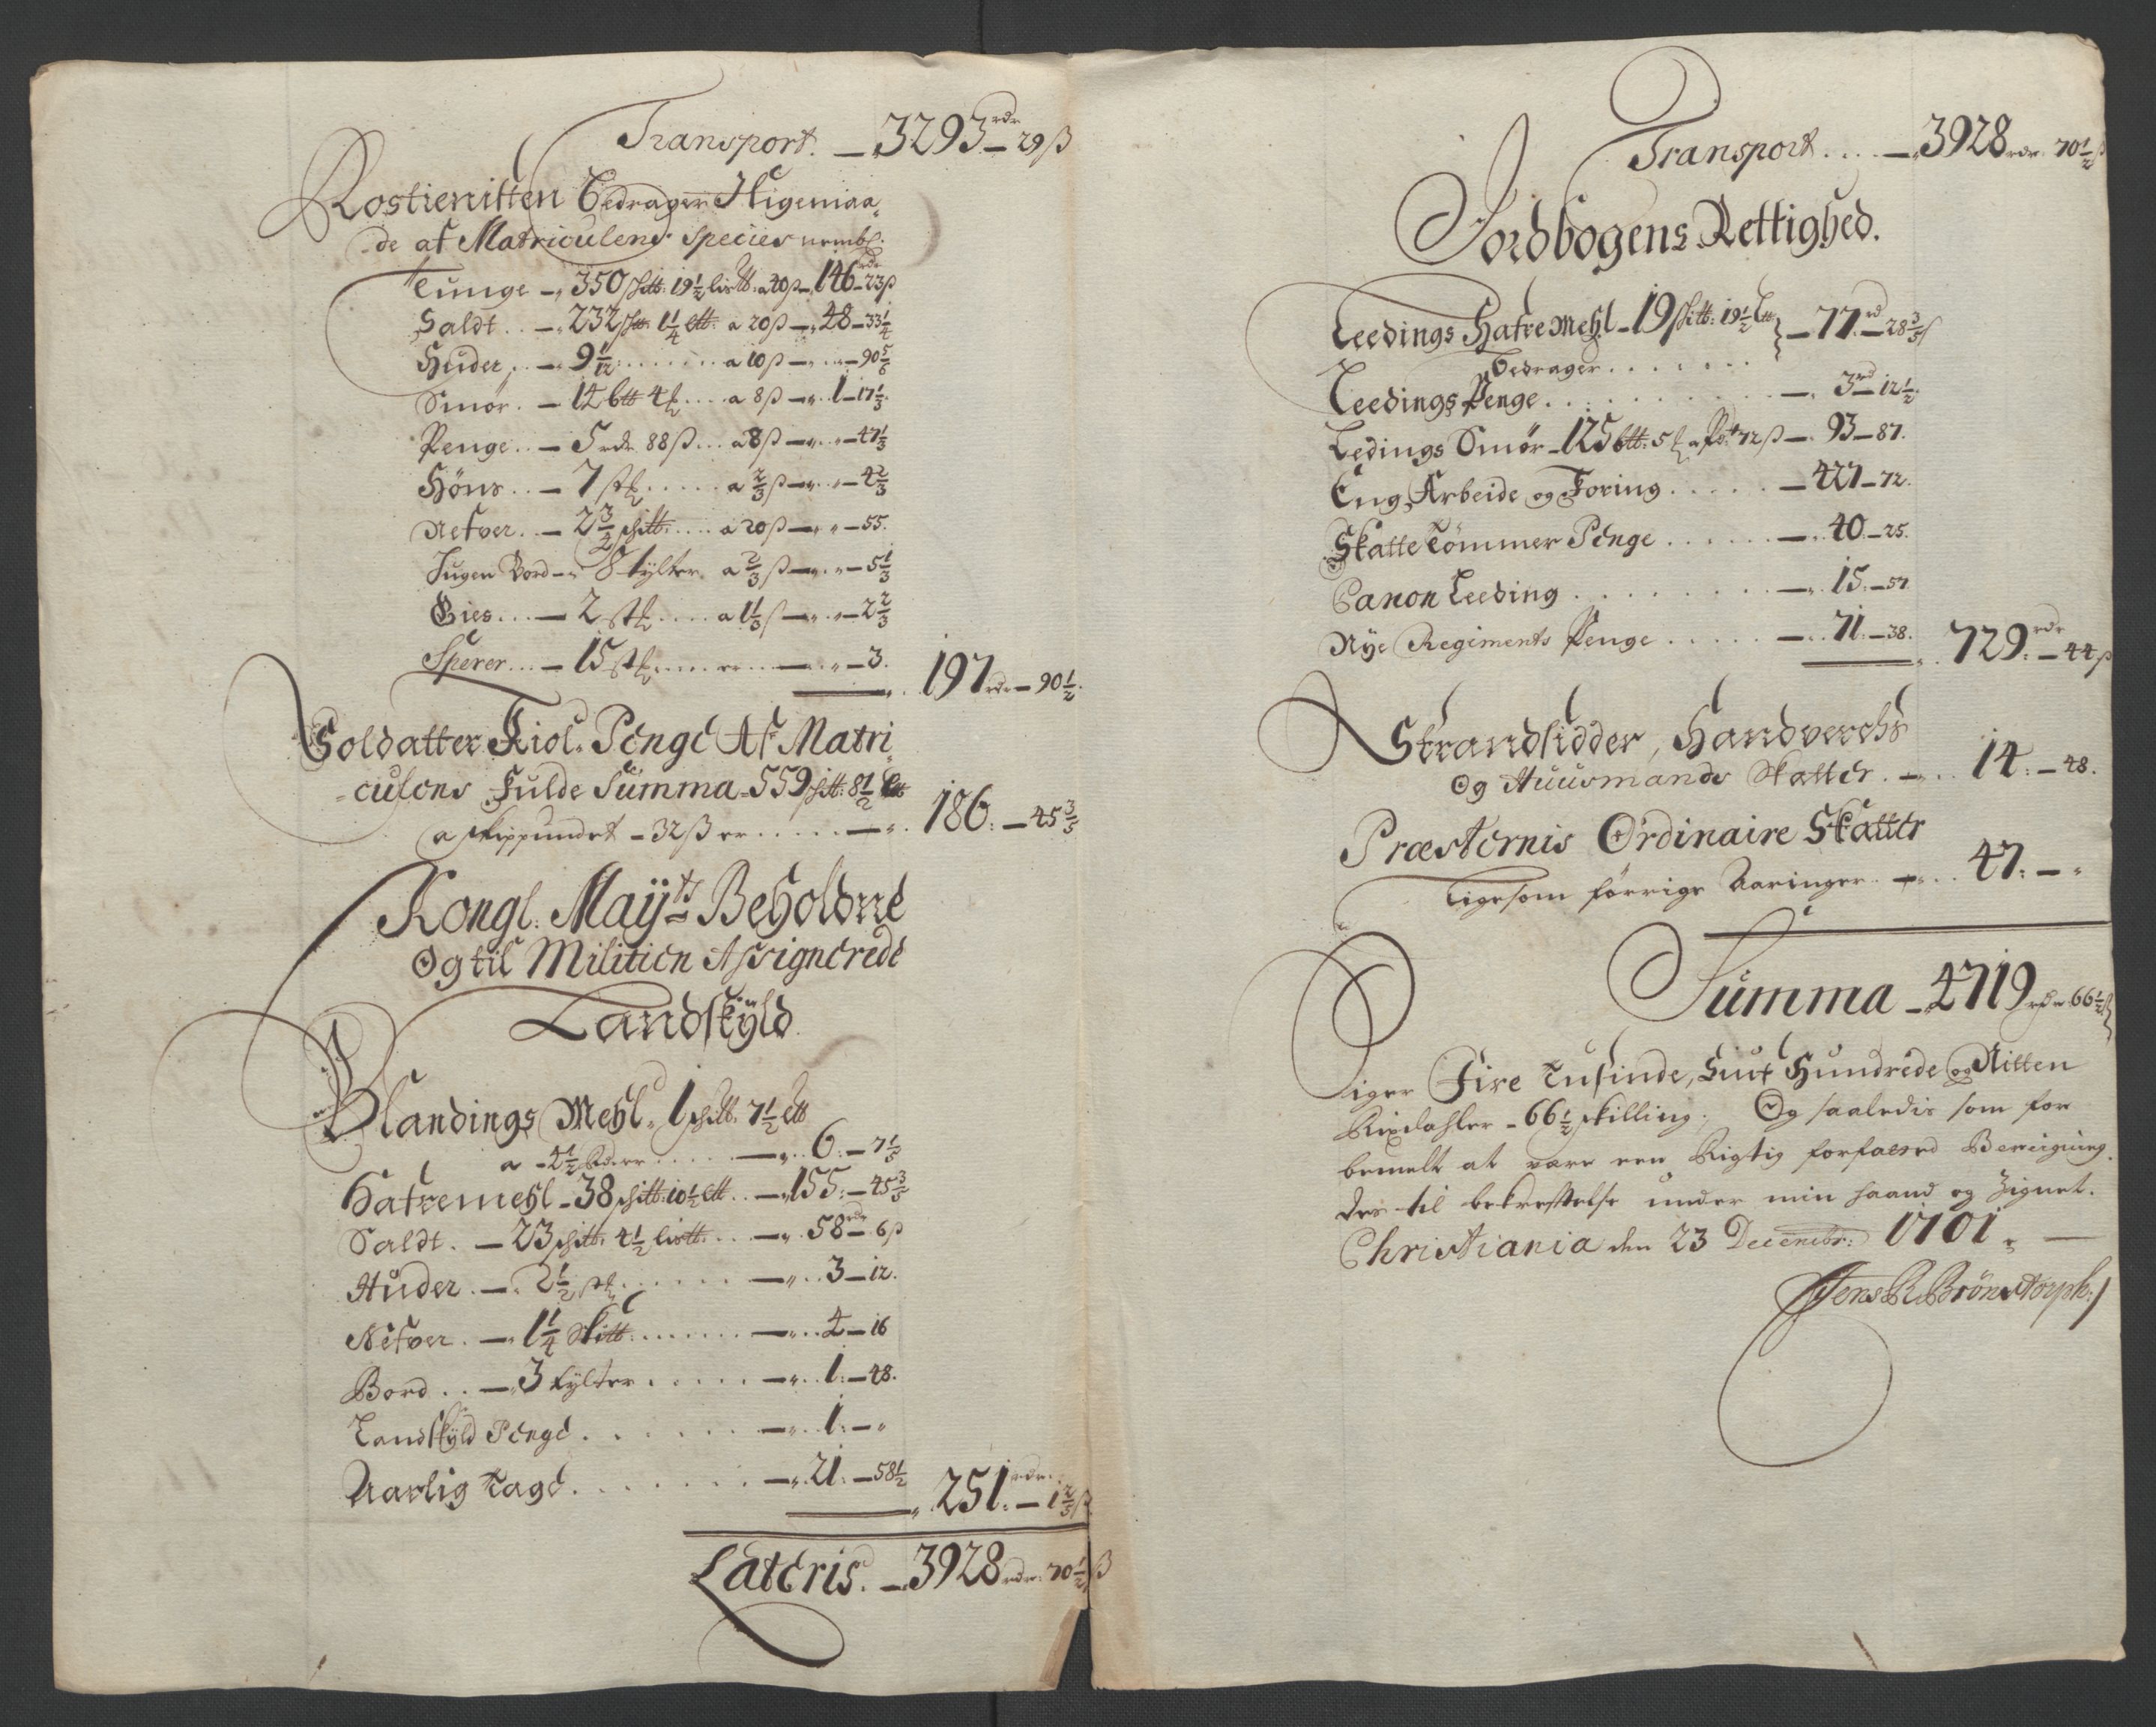 Transport. — 3293 rdr — 29 ß
Rostienisten Bedrager Ligeniaa-
de af Matriculens Species nembl:
Tunge — 350 sk℔: 19½ lis℔: a 40 ß — 146 rdr 23 ß
Saldt . . — 232 sk℔: 1¼ l℔: a 20 ß — 48 — 33¼
Huder . . — 9 1/12 . . . . . a 10 ß — „ — 90 5/6
Smör . — 14 b℔ 4 . . . . a 8 ß — 1 — 17⅓
Penge . . — 5 rdr 88 ß . . . a 8 ß — „ — 47⅓
Höns . . — 7 stk . . . . . a ⅔ ß — „ — 4⅔
Nefver . . — 2¾ sk℔: . . . . a 20 ß — „ — 55.
Sugen Bord — 8 tylter a ⅔ ß — „ — 5⅓
Gies . . . — 2 stk . . . . a 1⅓ ß — „ — 2⅔
Sperer . . . — 15 stk . . . er . . . — „ — 3.
197 rdr — 90½.
Soldatter Kiol-Penge Af Matri-
culens Fulde Summa — 559 sk℔: 8½ l℔
a skippundet — 32 ß er . . . . . — 186: — 45⅗
Kongl. Maÿts Beholdne
Og til Militien Assignerede
Landskÿld.
Blandings Mehl. 1 sk℔. 7½ l℔
a — 4½ rdr er . . . . . — 6: — 7⅕
Hafremehl — 38 sk℔: 10½ l℔ . . — 155: — 45⅗
Saldt . — 23 sk℔: 4½ lis℔: . . — 58 rdr — 6 ß
Huder . — 2½ stk . . . . . — 3 — 12.
Nefver . — 1¼ Sk℔: . . . . . . — 4 — 16
Bord . . — 3 tylter . . . . . — 1: — 48.
Landskyld Penge . . . . . . — 1: — „
Aarlig Tage . . . . . . . — 21: — 58½
251 rdr: — 1⅖ ß
Lateris. — 3928 rdr: 70½ ß
Transport . . . . — 3928 rdr. 70½ ß
Jordbogens Rettighed.
Leedings Hafre Mehl — 19 sk℔: 19½ l℔ } — 77 rd — 28⅗ ß
Bedrager . . . . . . .
Leedings Penge . . . . . . . . . — 3 rd — 12½.
Ledings Smör — 125 b℔: 5 a Pd: 72 ß — 93 — 87.
Eng Arbeide og Foring . . . . . — 427 — 72.
Skatte Tömmer Penge . . . . . . — 40 — 25.
Canon Leeding . . . . . . . . — 15: — 57
Nye Regiments Penge . . . . . — 71: — 38.
729: rdr — 44 ß
Strandsidder, Handverchs
Og Huusmands Skatter. — 14: — 48.
Præsternis Ordinaire Skatter
Ligesom förrige Aaringer — 47: — „
Summa — 4719 rdr 66½ ß
Siger Fire Tusinde, Siuf Hundrede og Nitten
Rixdahler — 66½ skilling; Og saaledis som for
bemelt at være een Rigtig forfatted Beregning.
Des til bekreftelse under min haand og Zignet.
Christiania den 23 Decembr: 1701. —
Jens R. Brönstorph:/